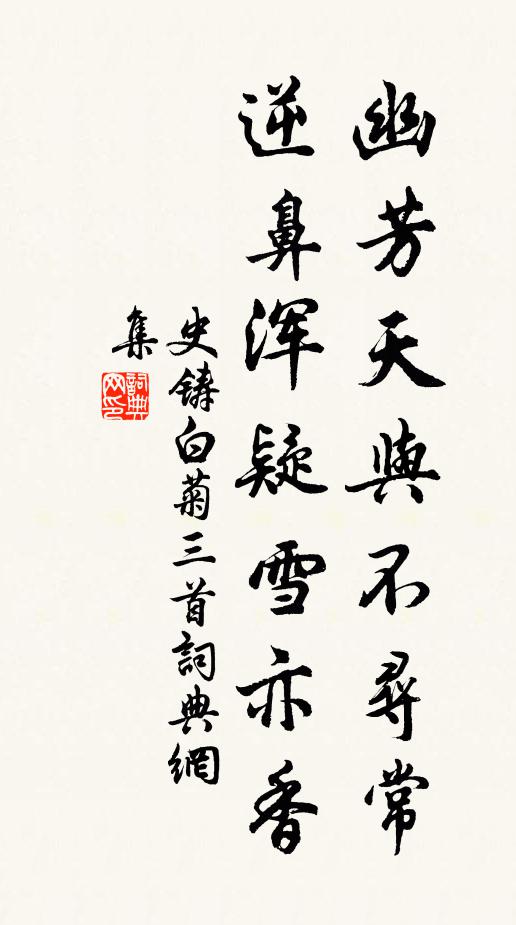 幽芳天與不尋常
逆鼻渾疑雪亦香
史鑄白菊三首詞典網
集
詞典
网印